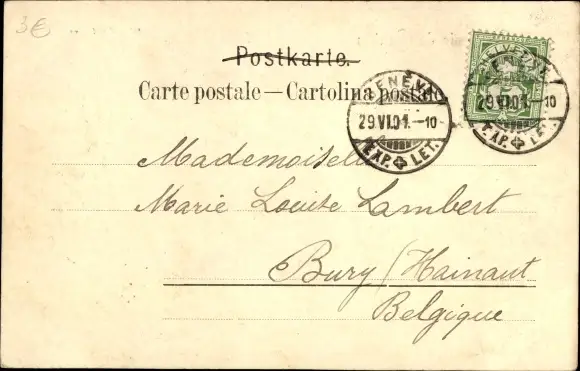 3€
Postkarte.
Carte postale — Cartolina postale
GENÈVE
29.VI.01.—10
EXP. LET.
HELVETIA
GENÈVE
29.VI.01.—10
EXP. LET.
Mademoiselle
Marie Louise Lambert
Bury (Hainaut
Belgique